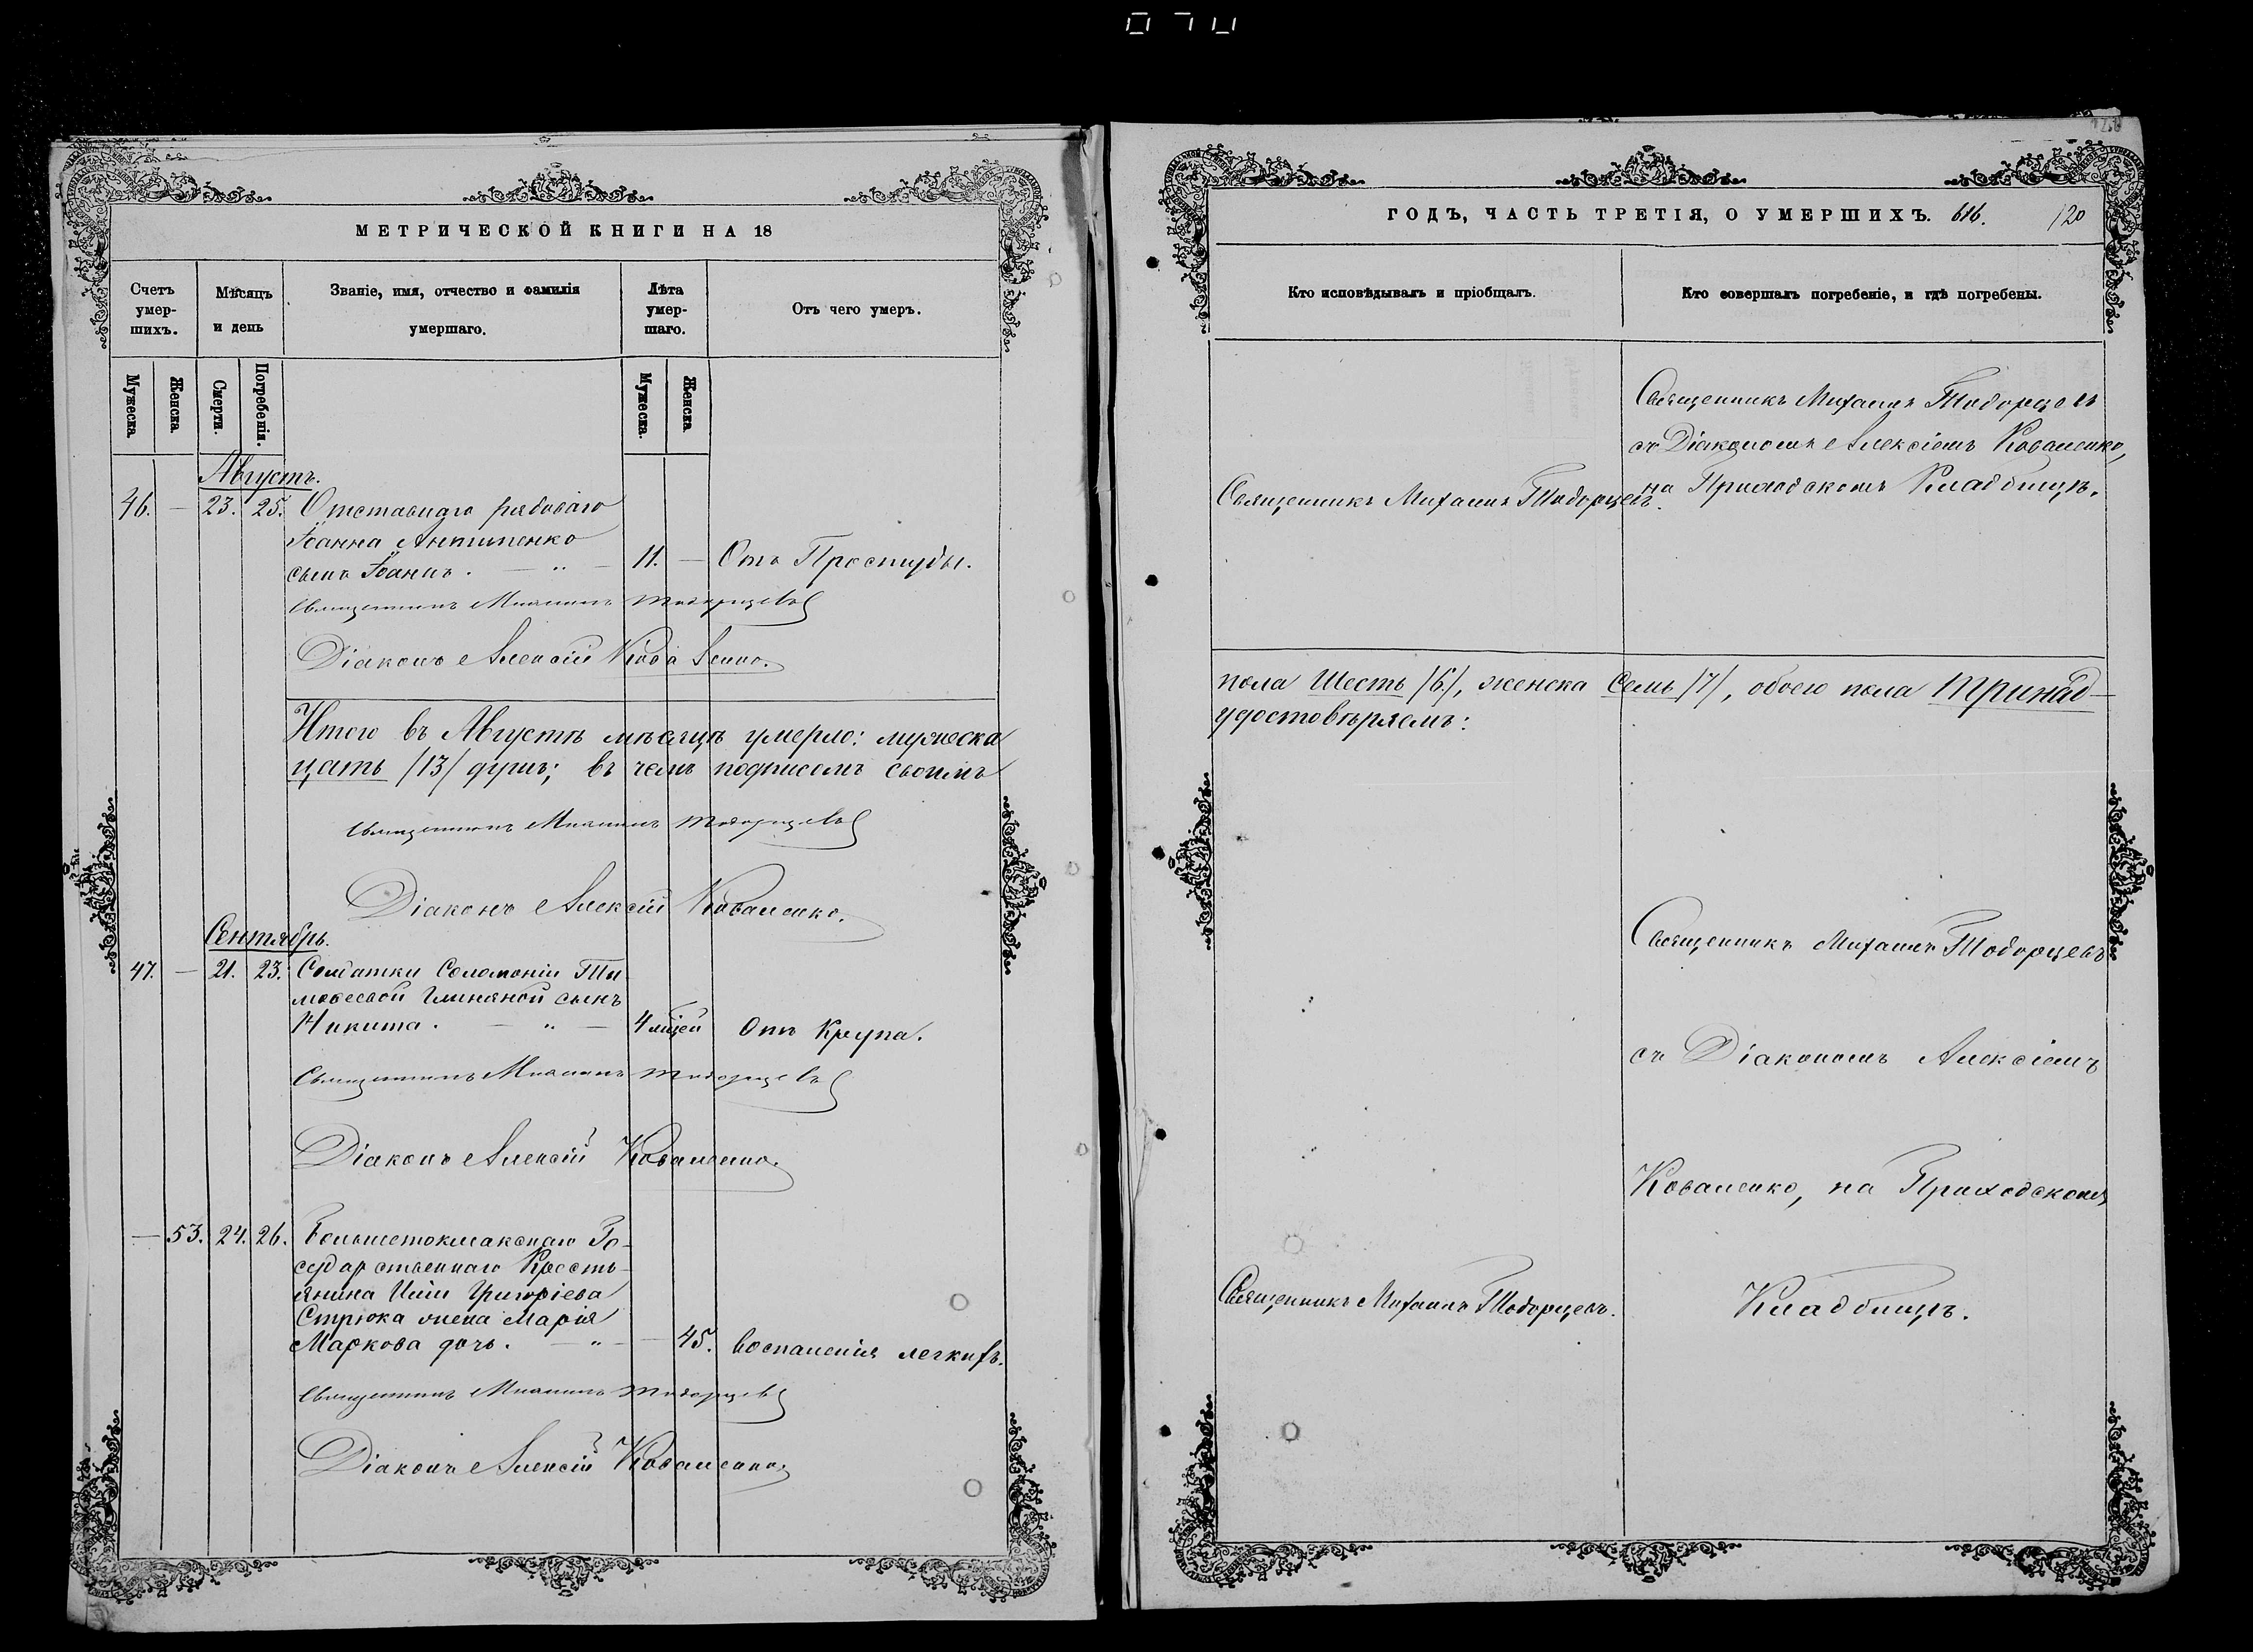 МЕТРИЧЕСКОЙ КНИГИ НА 18
Счетъ умер-шихъ.
Мѣсяцъ и день
Званіе, имя, отчество и фамилія умершаго.
Лѣта умер-шаго.
Отъ чего умеръ.
Мужеска.
Женска.
Смерти.
Погребенія.
Мужеска.
Женска
Августъ.
46. — 23. 25. Отставнаго рядоваго
Іоанна Антипенко
сынъ Іоаннъ. — „ — 11. — Отъ Простуды.
Священникъ Михаилъ Тодорцевъ
Діаконъ Алексій Коваленко.
Итого въ Августѣ мѣсяцѣ умерло: мужеска
цать /13/ душъ; въ чемъ подписомъ своимъ
Священникъ Михаилъ Тодорцевъ
Діаконъ Алексій Коваленко.
Сентябрь.
47. — 21. 23. Солдатки Соломоніи Ти-
мовеевой Глиняной сынъ
Никита. — „ — 4 мѣсцей Отъ Крупа.
Священникъ Михаилъ Тодорцевъ
Діаконъ Алексій Коваленко.
— 53. 24. 26. Большетокмакскаго Го-
сударственнаго Кресть-
янина Иліи Григоріева
Стрюка жена Марія
Маркова дочь. — „ — — 45. Воспаленія легкихъ.
Священникъ Михаилъ Тодорцевъ
Діаконъ Алексій Коваленко.
ГОДЪ, ЧАСТЬ ТРЕТІЯ, О УМЕРШИХЪ. 616. 120
Кто исповѣдывалъ и пріобщалъ.
Кто совершалъ погребеніе, и гдѣ погребены.
Священникъ Михаилъ Тодорцевъ
съ Діакономъ Алексіемъ Коваленко,
на Приходскомъ Кладбищѣ.
Священникъ Михаилъ Тодорцевъ.
пола Шесть /6/, женска Семь /7/, обоего пола Тринад-
удостовѣряемъ:
Священникъ Михаилъ Тодорцевъ
съ Діакономъ Алексіемъ
Коваленко, на Приходскомъ
Священникъ Михаилъ Тодорцевъ.
Кладбищѣ.